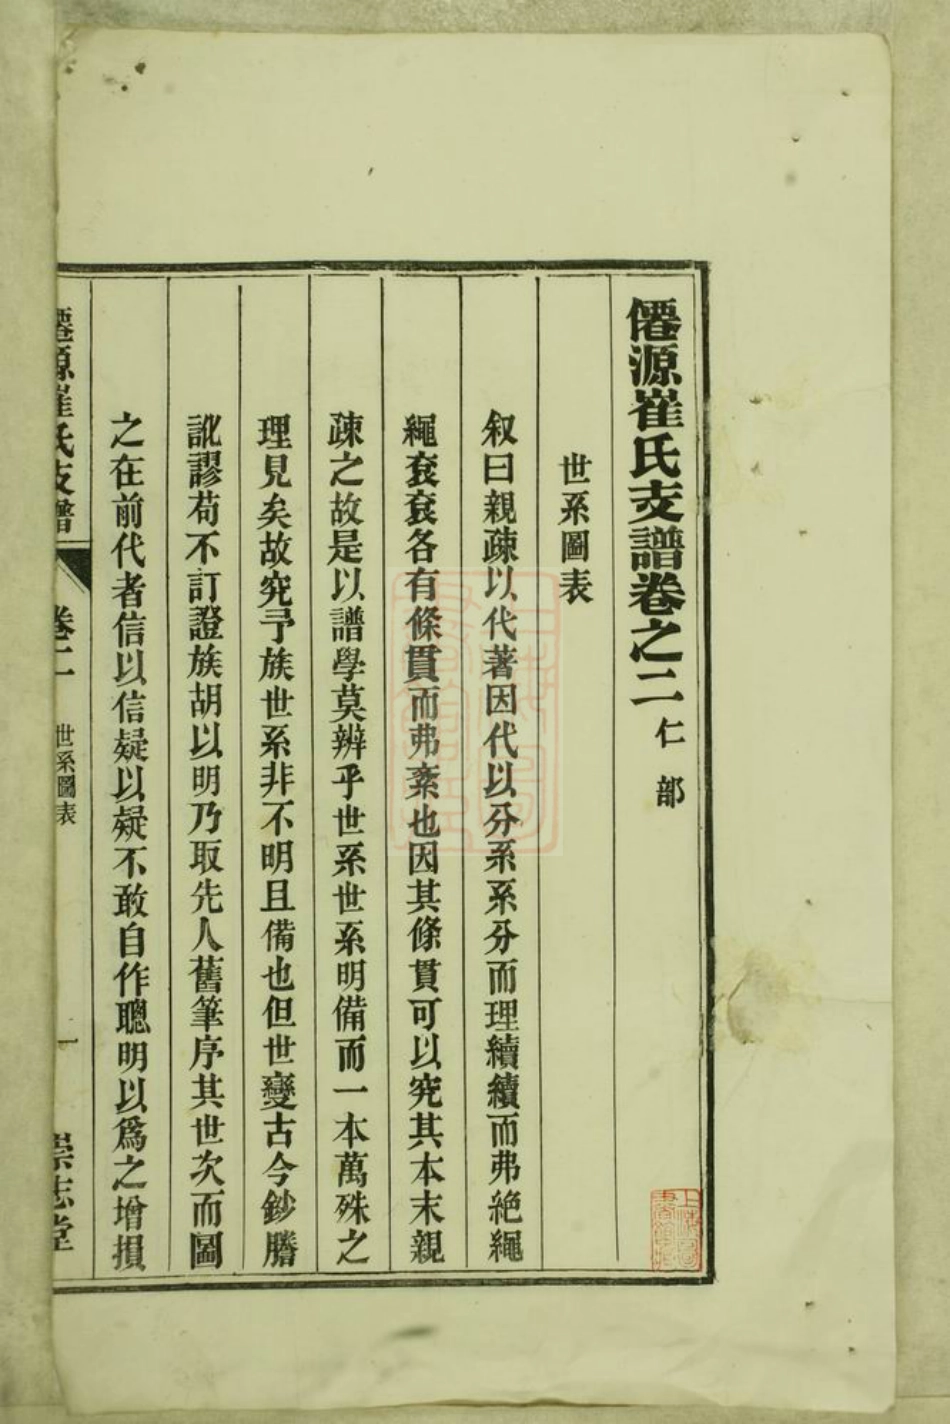 僊源崔氏支譜卷之二 仁部
世系圖表
叙曰親疎以代著因代以分系系分而理續續而弗絶繩
繩袞袞各有條貫而弗紊也因其條貫可以究其本末親
疎之故是以譜學莫辨乎世系世系明備而一本萬殊之
理見矣故究予族世系非不明且備也但世變古今鈔謄
訛謬苟不訂證族胡以明乃取先人舊筆序其世次而圖
之在前代者信以信疑以疑不敢自作聰明以爲之增損
僊源崔氏支譜 卷二 世系圖表 一 崇志堂